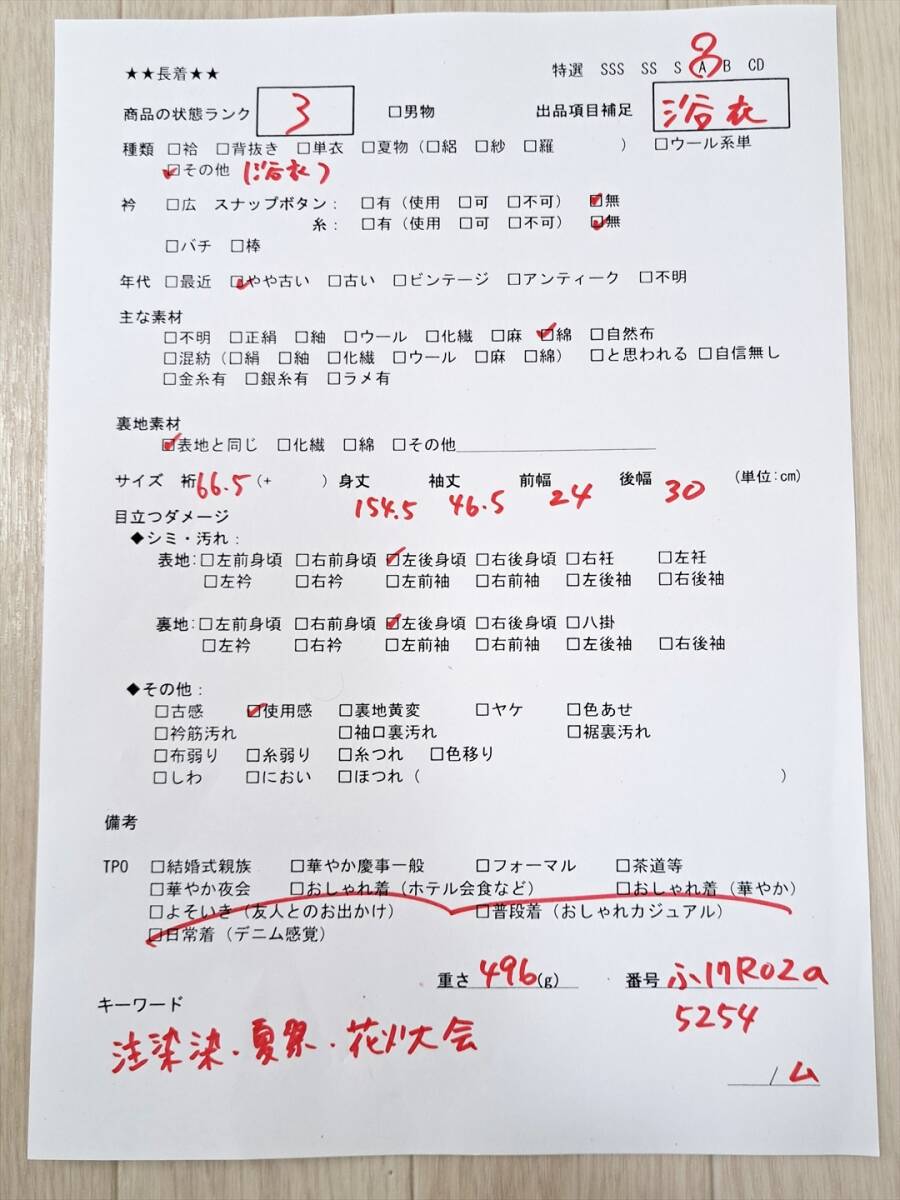 ★★長着★★
特選 SSS SS S A B CD
商品の状態ランク 3 □男物 出品項目補足 浴衣
種類 □袷 □背抜き □単衣 □夏物(□絽 □紗 □羅 ) □ウール系単
☑その他 (浴衣)
衿 □広 スナップボタン: □有(使用 □可 □不可) ☑無
糸: □有(使用 □可 □不可) ☑無
□バチ □棒
年代 □最近 ☑やや古い □古い □ビンテージ □アンティーク □不明
主な素材
□不明 □正絹 □紬 □ウール □化繊 □麻 ☑綿 □自然布
□混紡(□絹 □紬 □化繊 □ウール □麻 □綿) □と思われる □自信無し
□金糸有 □銀糸有 □ラメ有
裏地素材
☑表地と同じ □化繊 □綿 □その他
サイズ 裄 66.5 (+ ) 身丈 154.5 袖丈 46.5 前幅 24 後幅 30 (単位:cm)
目立つダメージ
◆シミ・汚れ:
表地: □左前身頃 □右前身頃 ☑左後身頃 □右後身頃 □右衽 □左衽
□左衿 □右衿 □左前袖 □右前袖 □左後袖 □右後袖
裏地: □左前身頃 □右前身頃 ☑左後身頃 □右後身頃 □八掛
□左衿 □右衿 □左前袖 □右前袖 □左後袖 □右後袖
◆その他:
□古感 ☑使用感 □裏地黄変 □ヤケ □色あせ
□衿筋汚れ □袖口裏汚れ □裾裏汚れ
□布弱り □糸弱り □糸つれ □色移り
□しわ □におい □ほつれ( )
備考
TPO □結婚式親族 □華やか慶事一般 □フォーマル □茶道等
□華やか夜会 □おしゃれ着(ホテル会食など) □おしゃれ着(華やか)
□よそいき(友人とのお出かけ) □普段着(おしゃれカジュアル)
□日常着(デニム感覚)
重さ 496 (g) 番号 R02a
5254
キーワード
注染染・夏祭・花火大会
/ ム